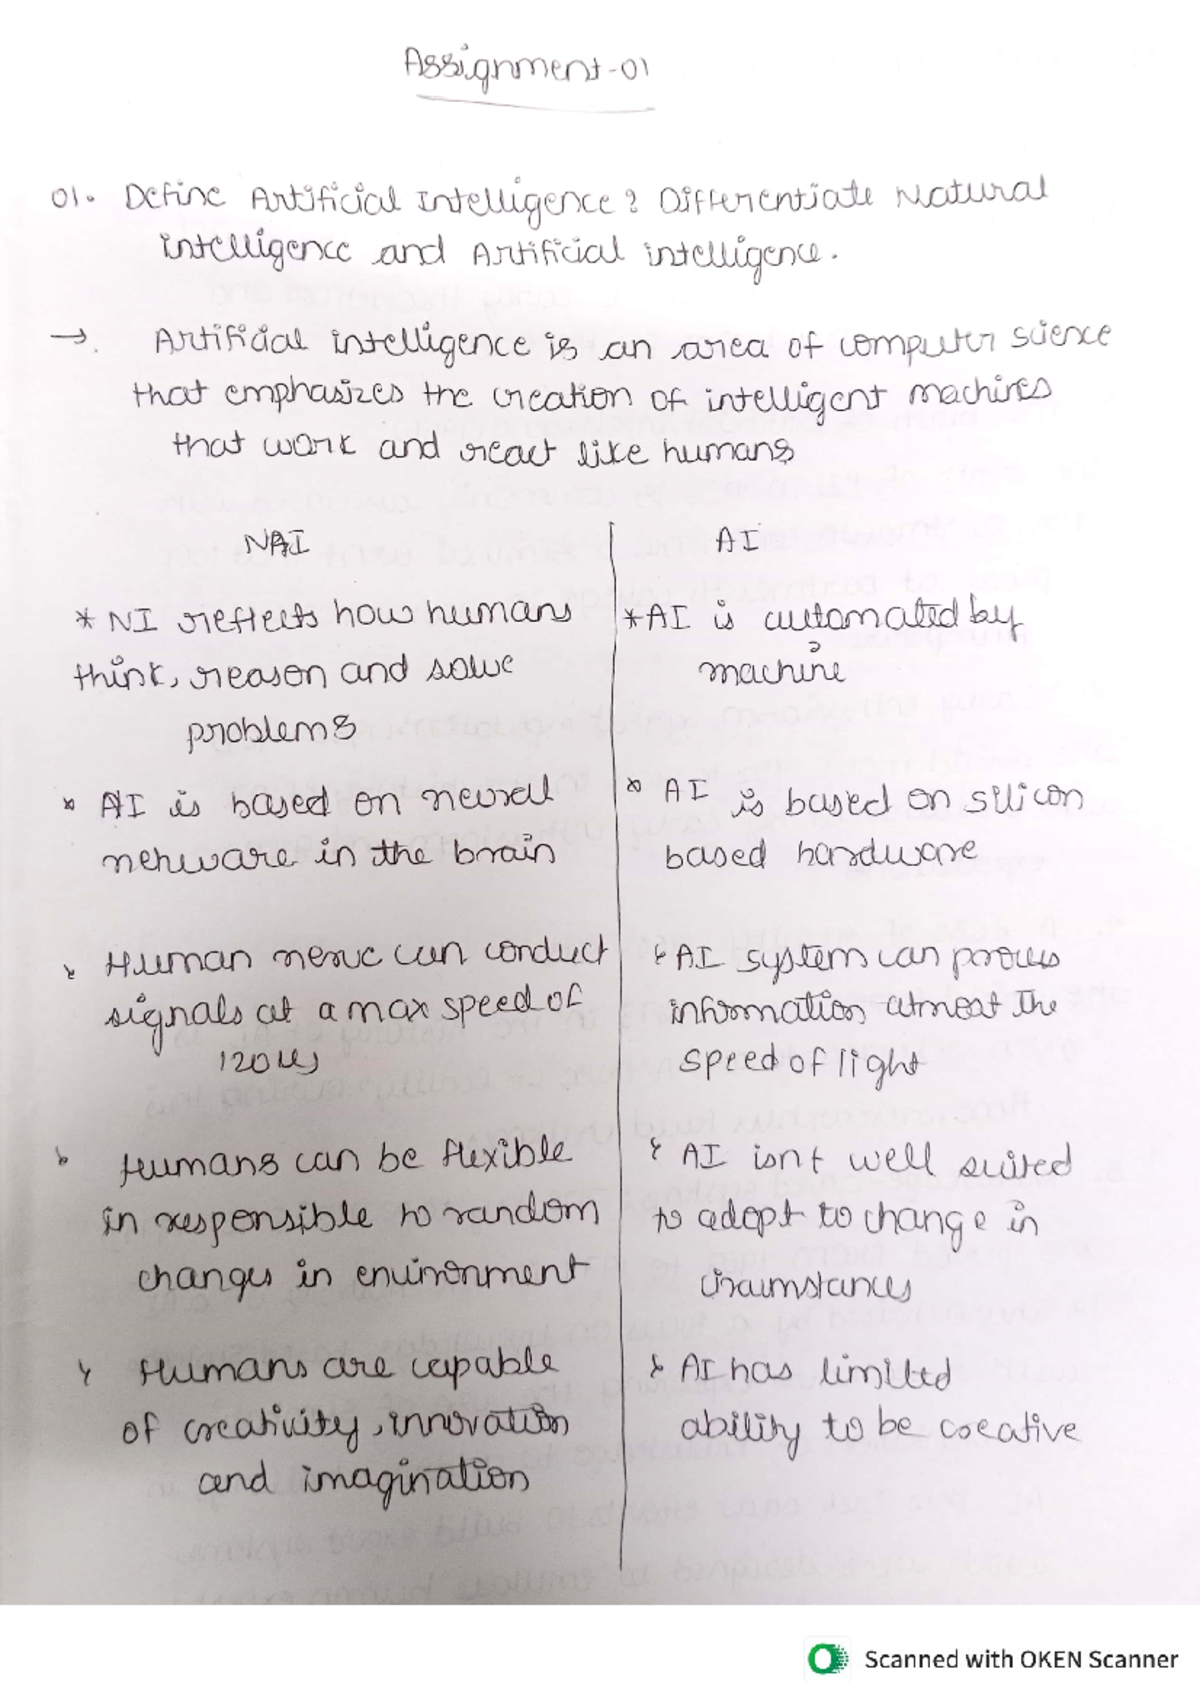 Assignment-01
01. Define Artificial Intelligence? Differentiate Natural
intelligence and Artificial intelligence.
→. Artificial intelligence is an area of computer science
that emphasizes the creation of intelligent machines
that work and react like humans
NAI
* NI reflects how humans
think, reason and solve
problems
* AI is based on neural
in the brain
* Human nerve can conduct
signals at a max speed of
120
* Humans can be flexible
in responsible to random
changes in environment
* Humans are capable
of creativity, innovation
and imagination
AI
* AI is automated by
machine
* AI is based on silicon
based hardware
* AI system can
information almost the
speed of light
* AI isnt well suited
to adopt to change in
circumstances
* AI has limited
ability to be creative
Scanned with OKEN Scanner